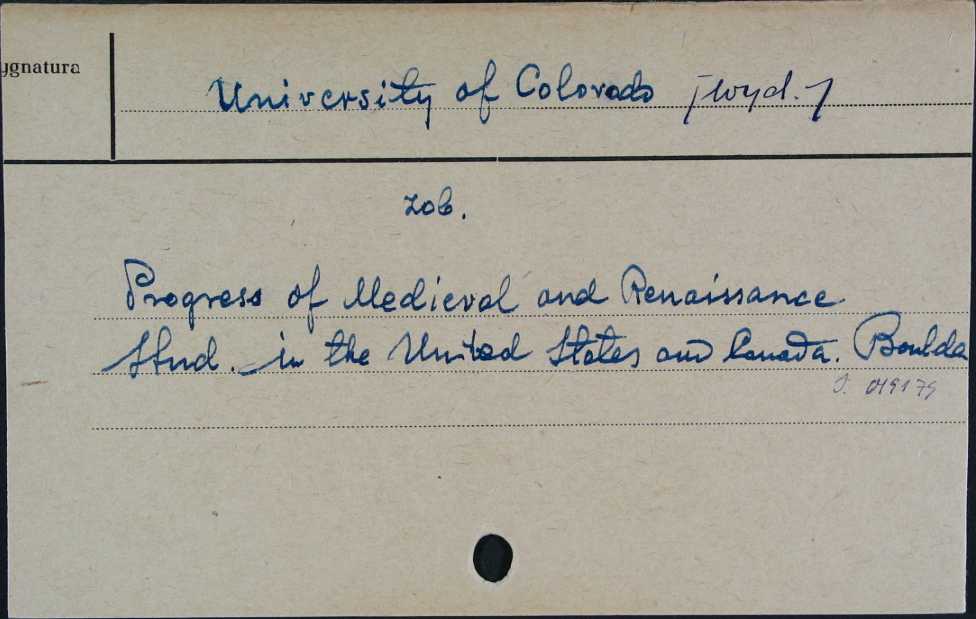 ygnatura
University of Colorado [wyd.]
zob.
Progress of Medieval and Renaissance
Stud. in the United States and Canada. Boulda
J. 019179